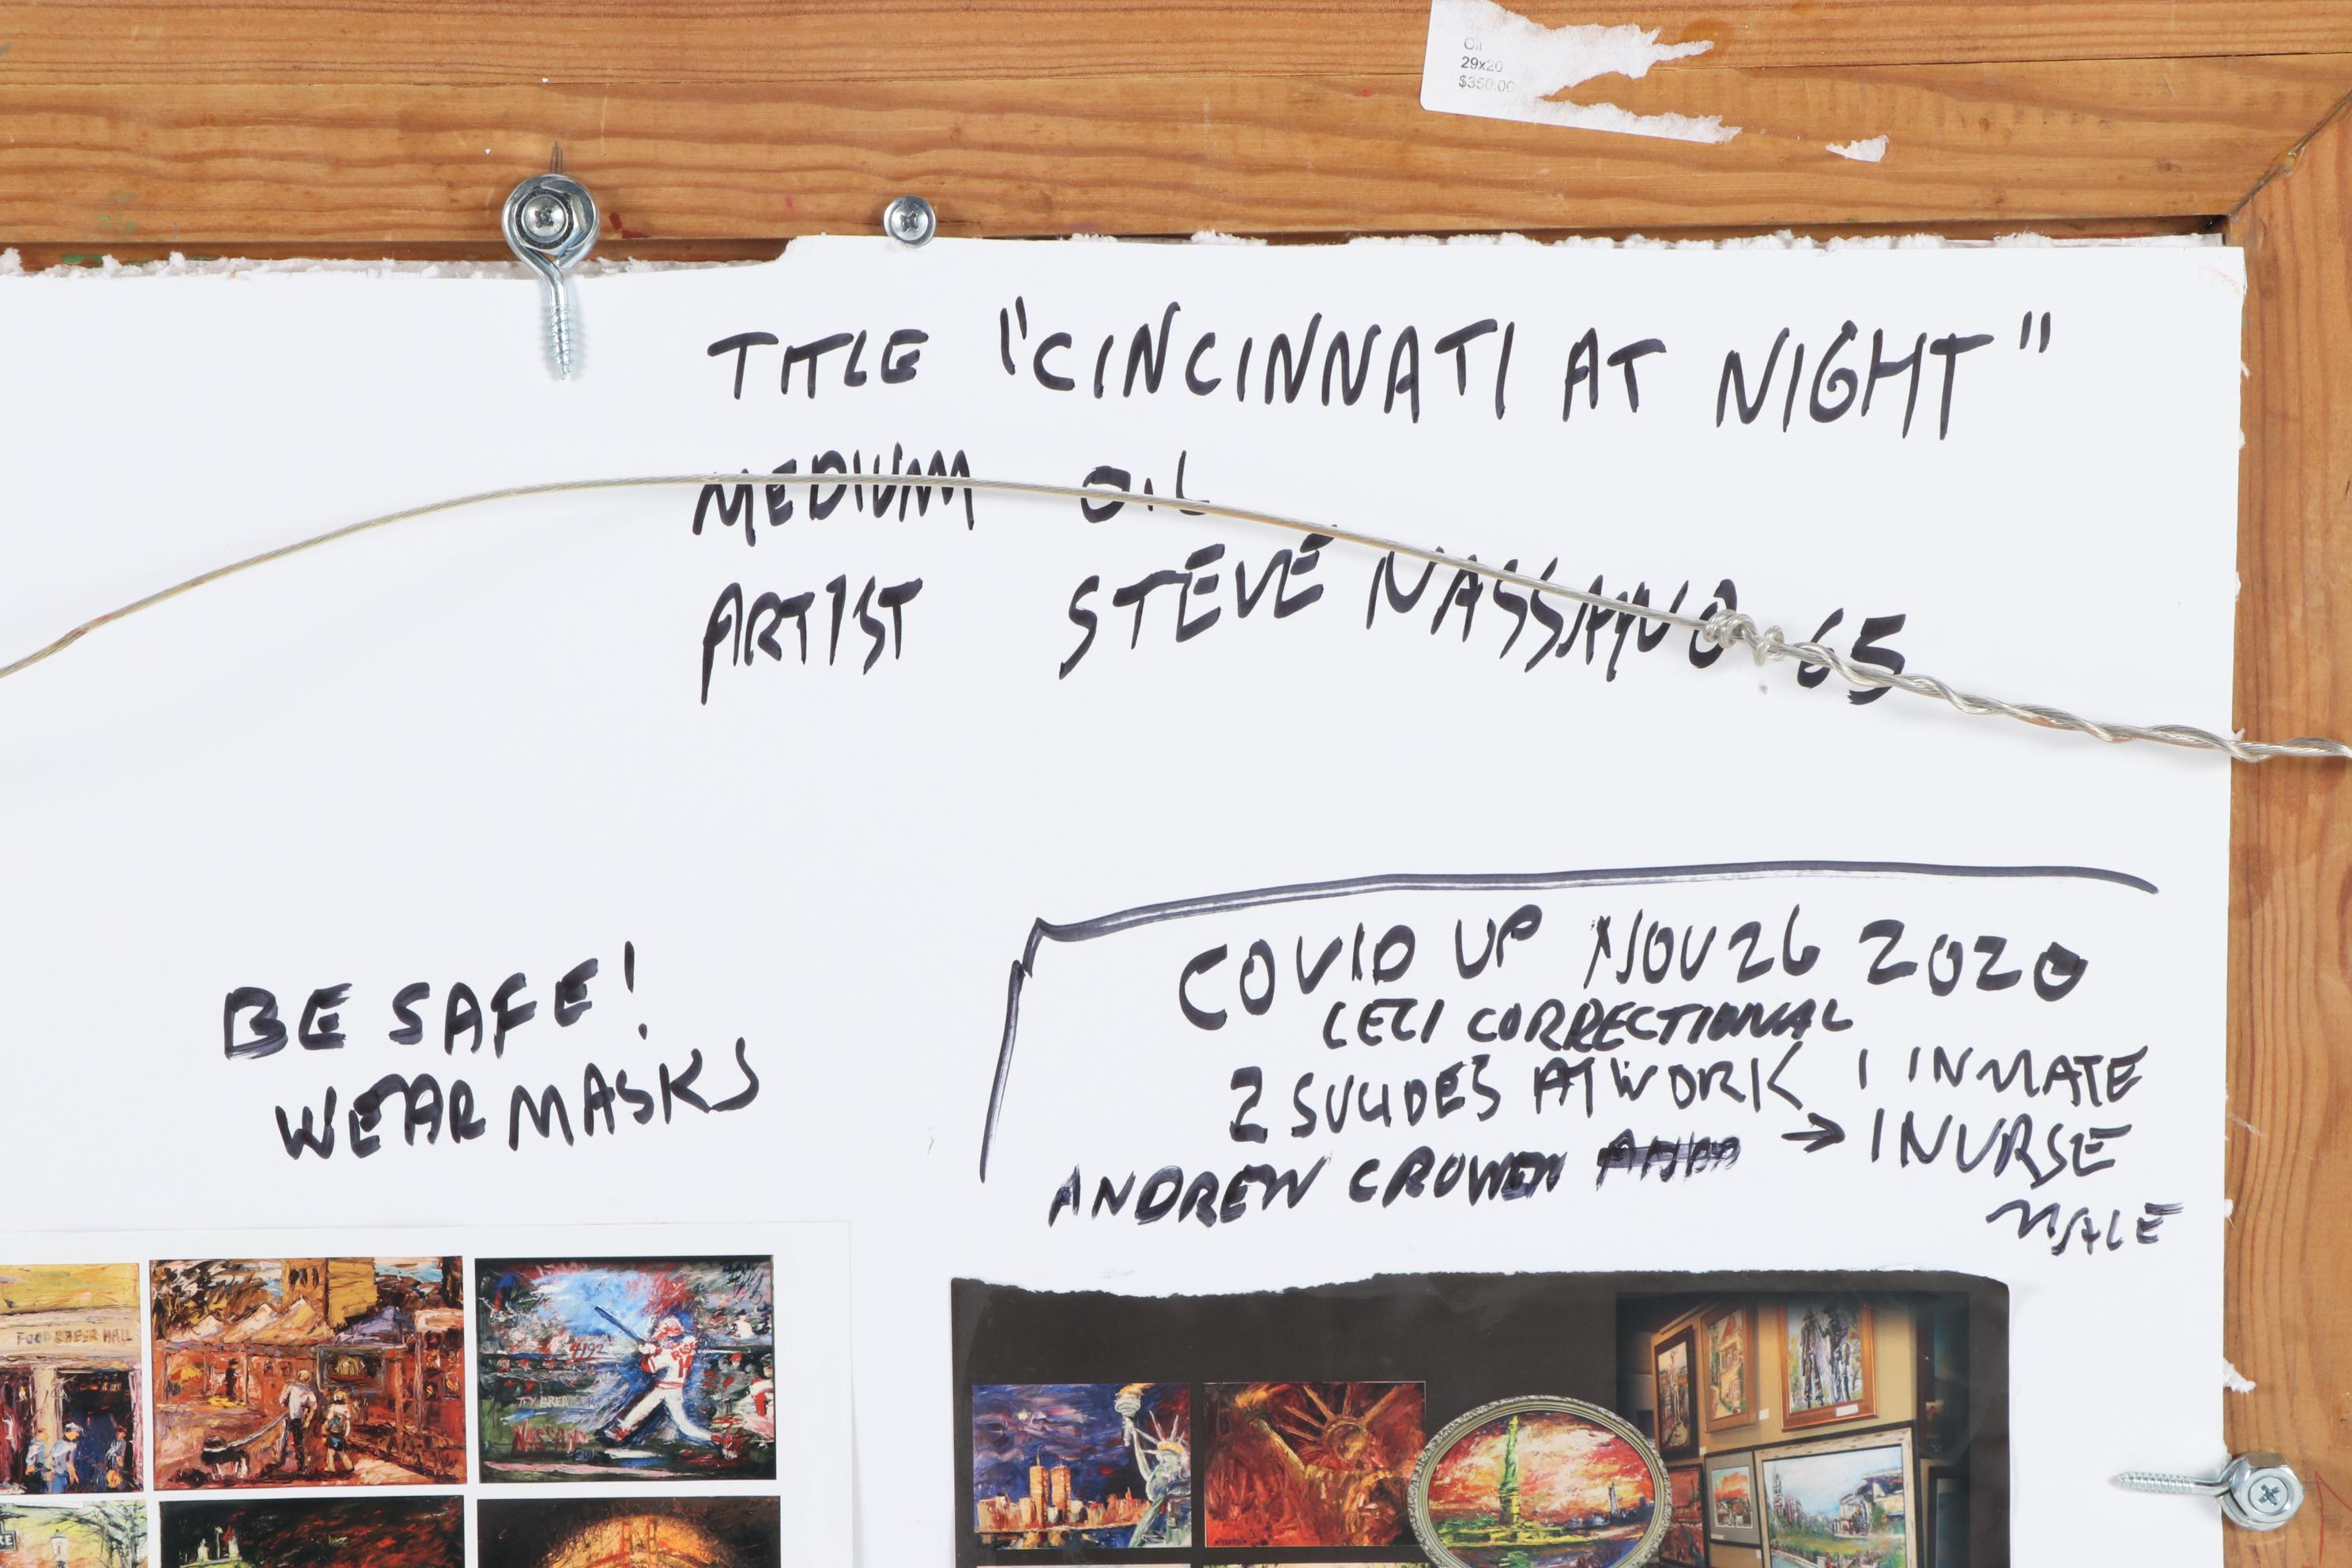 Oil
29x20
$350.00
TITLE "CINCINNATI AT NIGHT"
MEDIUM OIL
ARTIST STEVE NASSANO 65
BE SAFE!
WEAR MASKS
COVID UP NOV 26 2020
LECI CORRECTIONAL
2 SUCIDES AT WORK 1 INMATE
ANDREW CROWEN → 1 NURSE
MALE
FOOD & BEER HALL
4192
ROSE
14
TY BREAKER
NASSANO